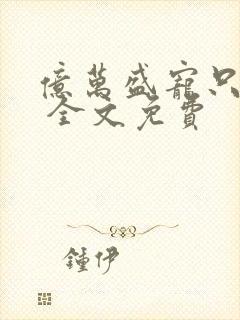 億萬盛寵只
全文免費
鍾伊